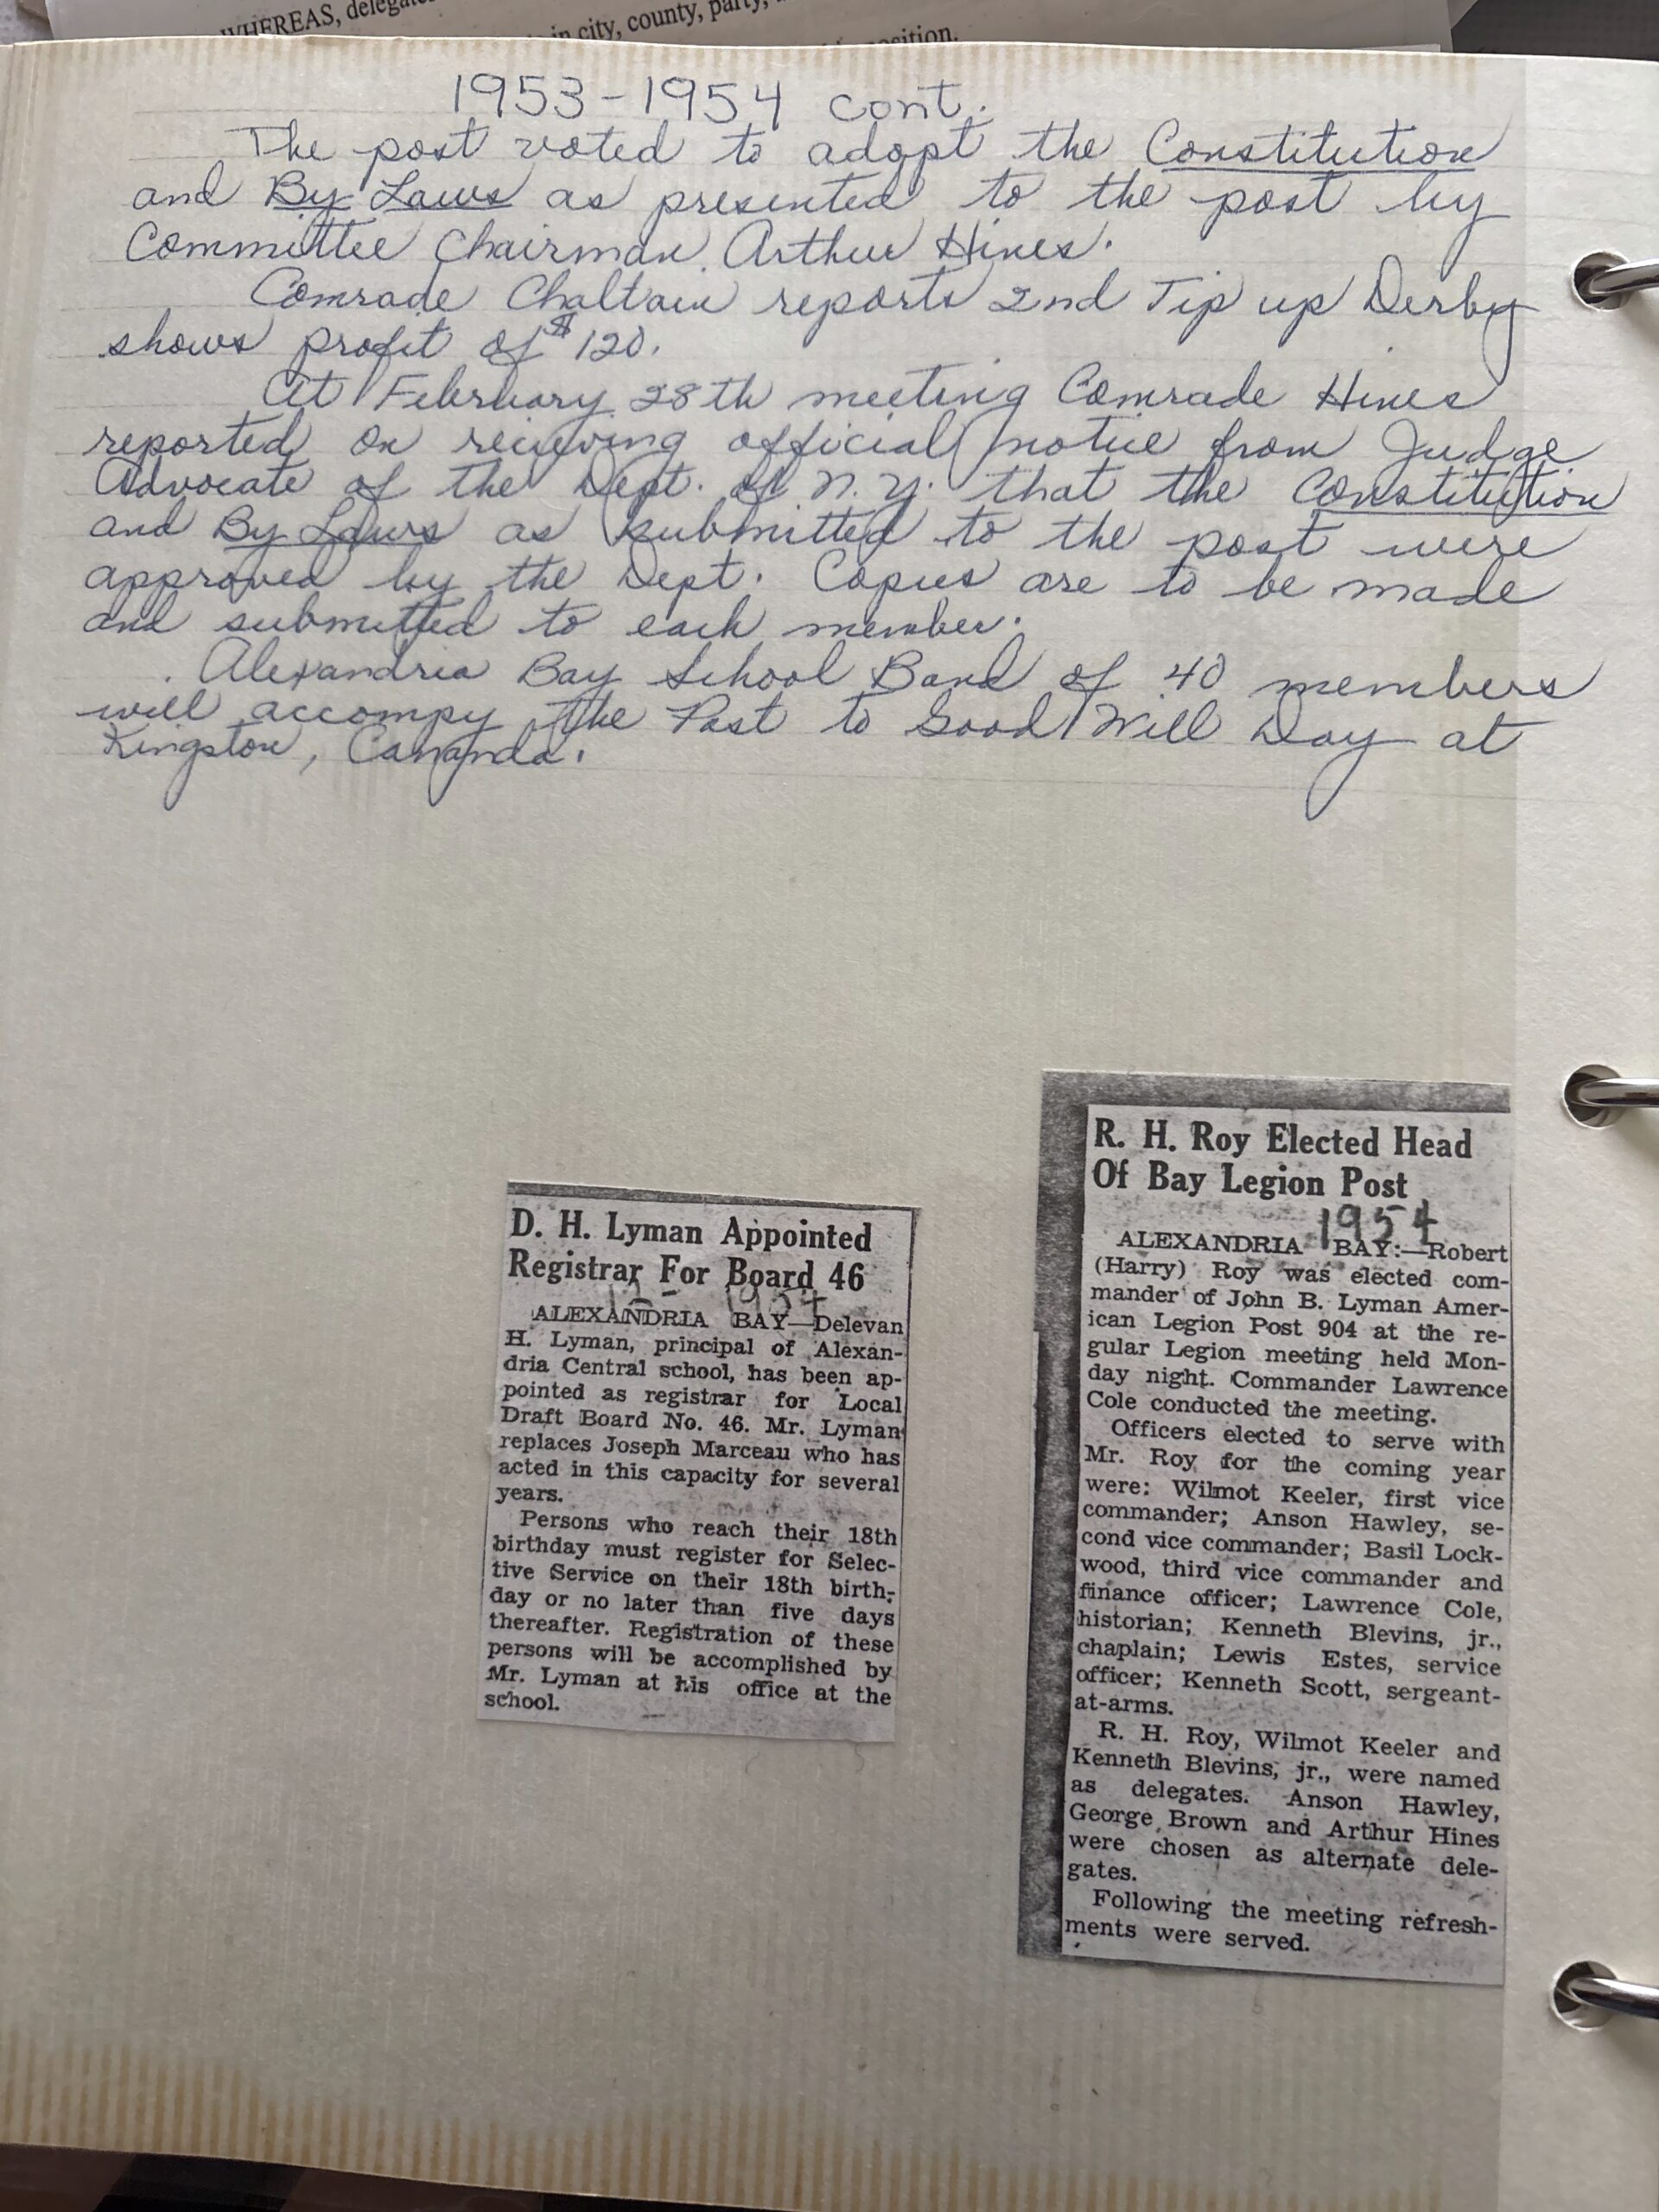 WHEREAS, delegate
in city, county, party,
position.
1953-1954 cont.
The post voted to adopt the Constitution
and By Laws as presented to the post by
Committee Chairman Arthur Hines.
Comrade Chaltain reports 2nd Tip up Derby
shows profit of $120.
At February 28th meeting Comrade Hines
reported on recieving official notice from Judge
Advocate of the Dept. of N.Y. that the Constitution
and By Laws as submitted to the post were
approved by the Dept. Copies are to be made
and submitted to each member.
Alexandria Bay School Band of 40 members
will accompy the Post to Good Will Day at
Kingston, Cananda.
D. H. Lyman Appointed
Registrar For Board 46
1954
ALEXANDRIA BAY—Delevan
H. Lyman, principal of Alexan-
dria Central school, has been ap-
pointed as registrar for Local
Draft Board No. 46. Mr. Lyman
replaces Joseph Marceau who has
acted in this capacity for several
years.
Persons who reach their 18th
birthday must register for Selec-
tive Service on their 18th birth-
day or no later than five days
thereafter. Registration of these
persons will be accomplished by
Mr. Lyman at his office at the
school.
R. H. Roy Elected Head
Of Bay Legion Post
1954
ALEXANDRIA BAY:—Robert
(Harry) Roy was elected com-
mander of John B. Lyman Amer-
ican Legion Post 904 at the re-
gular Legion meeting held Mon-
day night. Commander Lawrence
Cole conducted the meeting.
Officers elected to serve with
Mr. Roy for the coming year
were: Wilmot Keeler, first vice
commander; Anson Hawley, se-
cond vice commander; Basil Lock-
wood, third vice commander and
finance officer; Lawrence Cole,
historian; Kenneth Blevins, jr.,
chaplain; Lewis Estes, service
officer; Kenneth Scott, sergeant-
at-arms.
R. H. Roy, Wilmot Keeler and
Kenneth Blevins, jr., were named
as delegates. Anson Hawley,
George Brown and Arthur Hines
were chosen as alternate dele-
gates.
Following the meeting refresh-
ments were served.